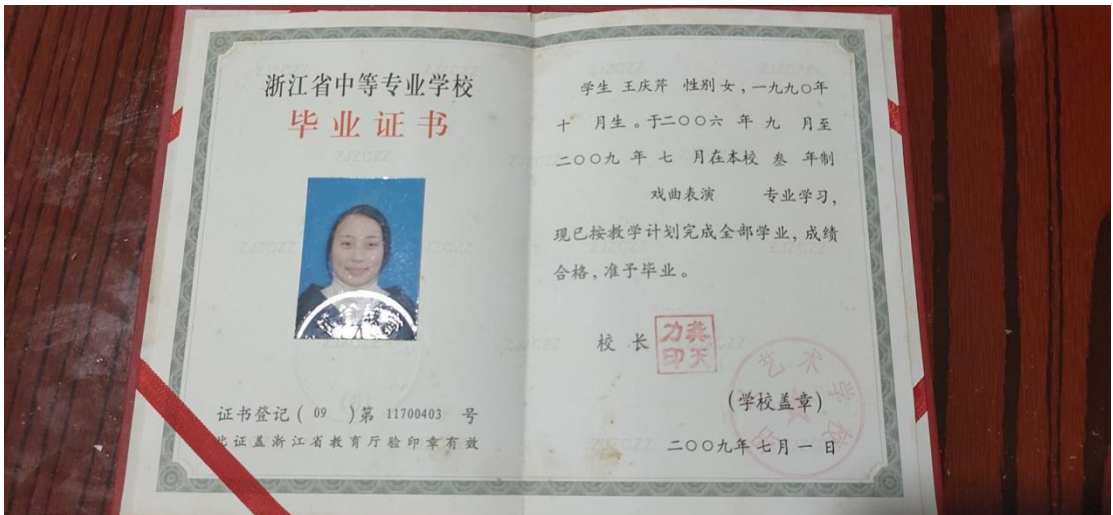 浙江省中等专业学校
毕业证书
证书登记( 09 )第 11700403 号
此证盖浙江省教育厅验印章有效
学生 王庆芹 性别 女,一九九〇年
十 月生。于二〇〇六 年 九 月至
二〇〇九 年 七 月在本校 叁 年制
戏曲表演 专业学习,
现已按教学计划完成全部学业,成绩
合格,准予毕业。
校 长
力
印天
艺术学校
(学校盖章)
二〇〇九年七月一日